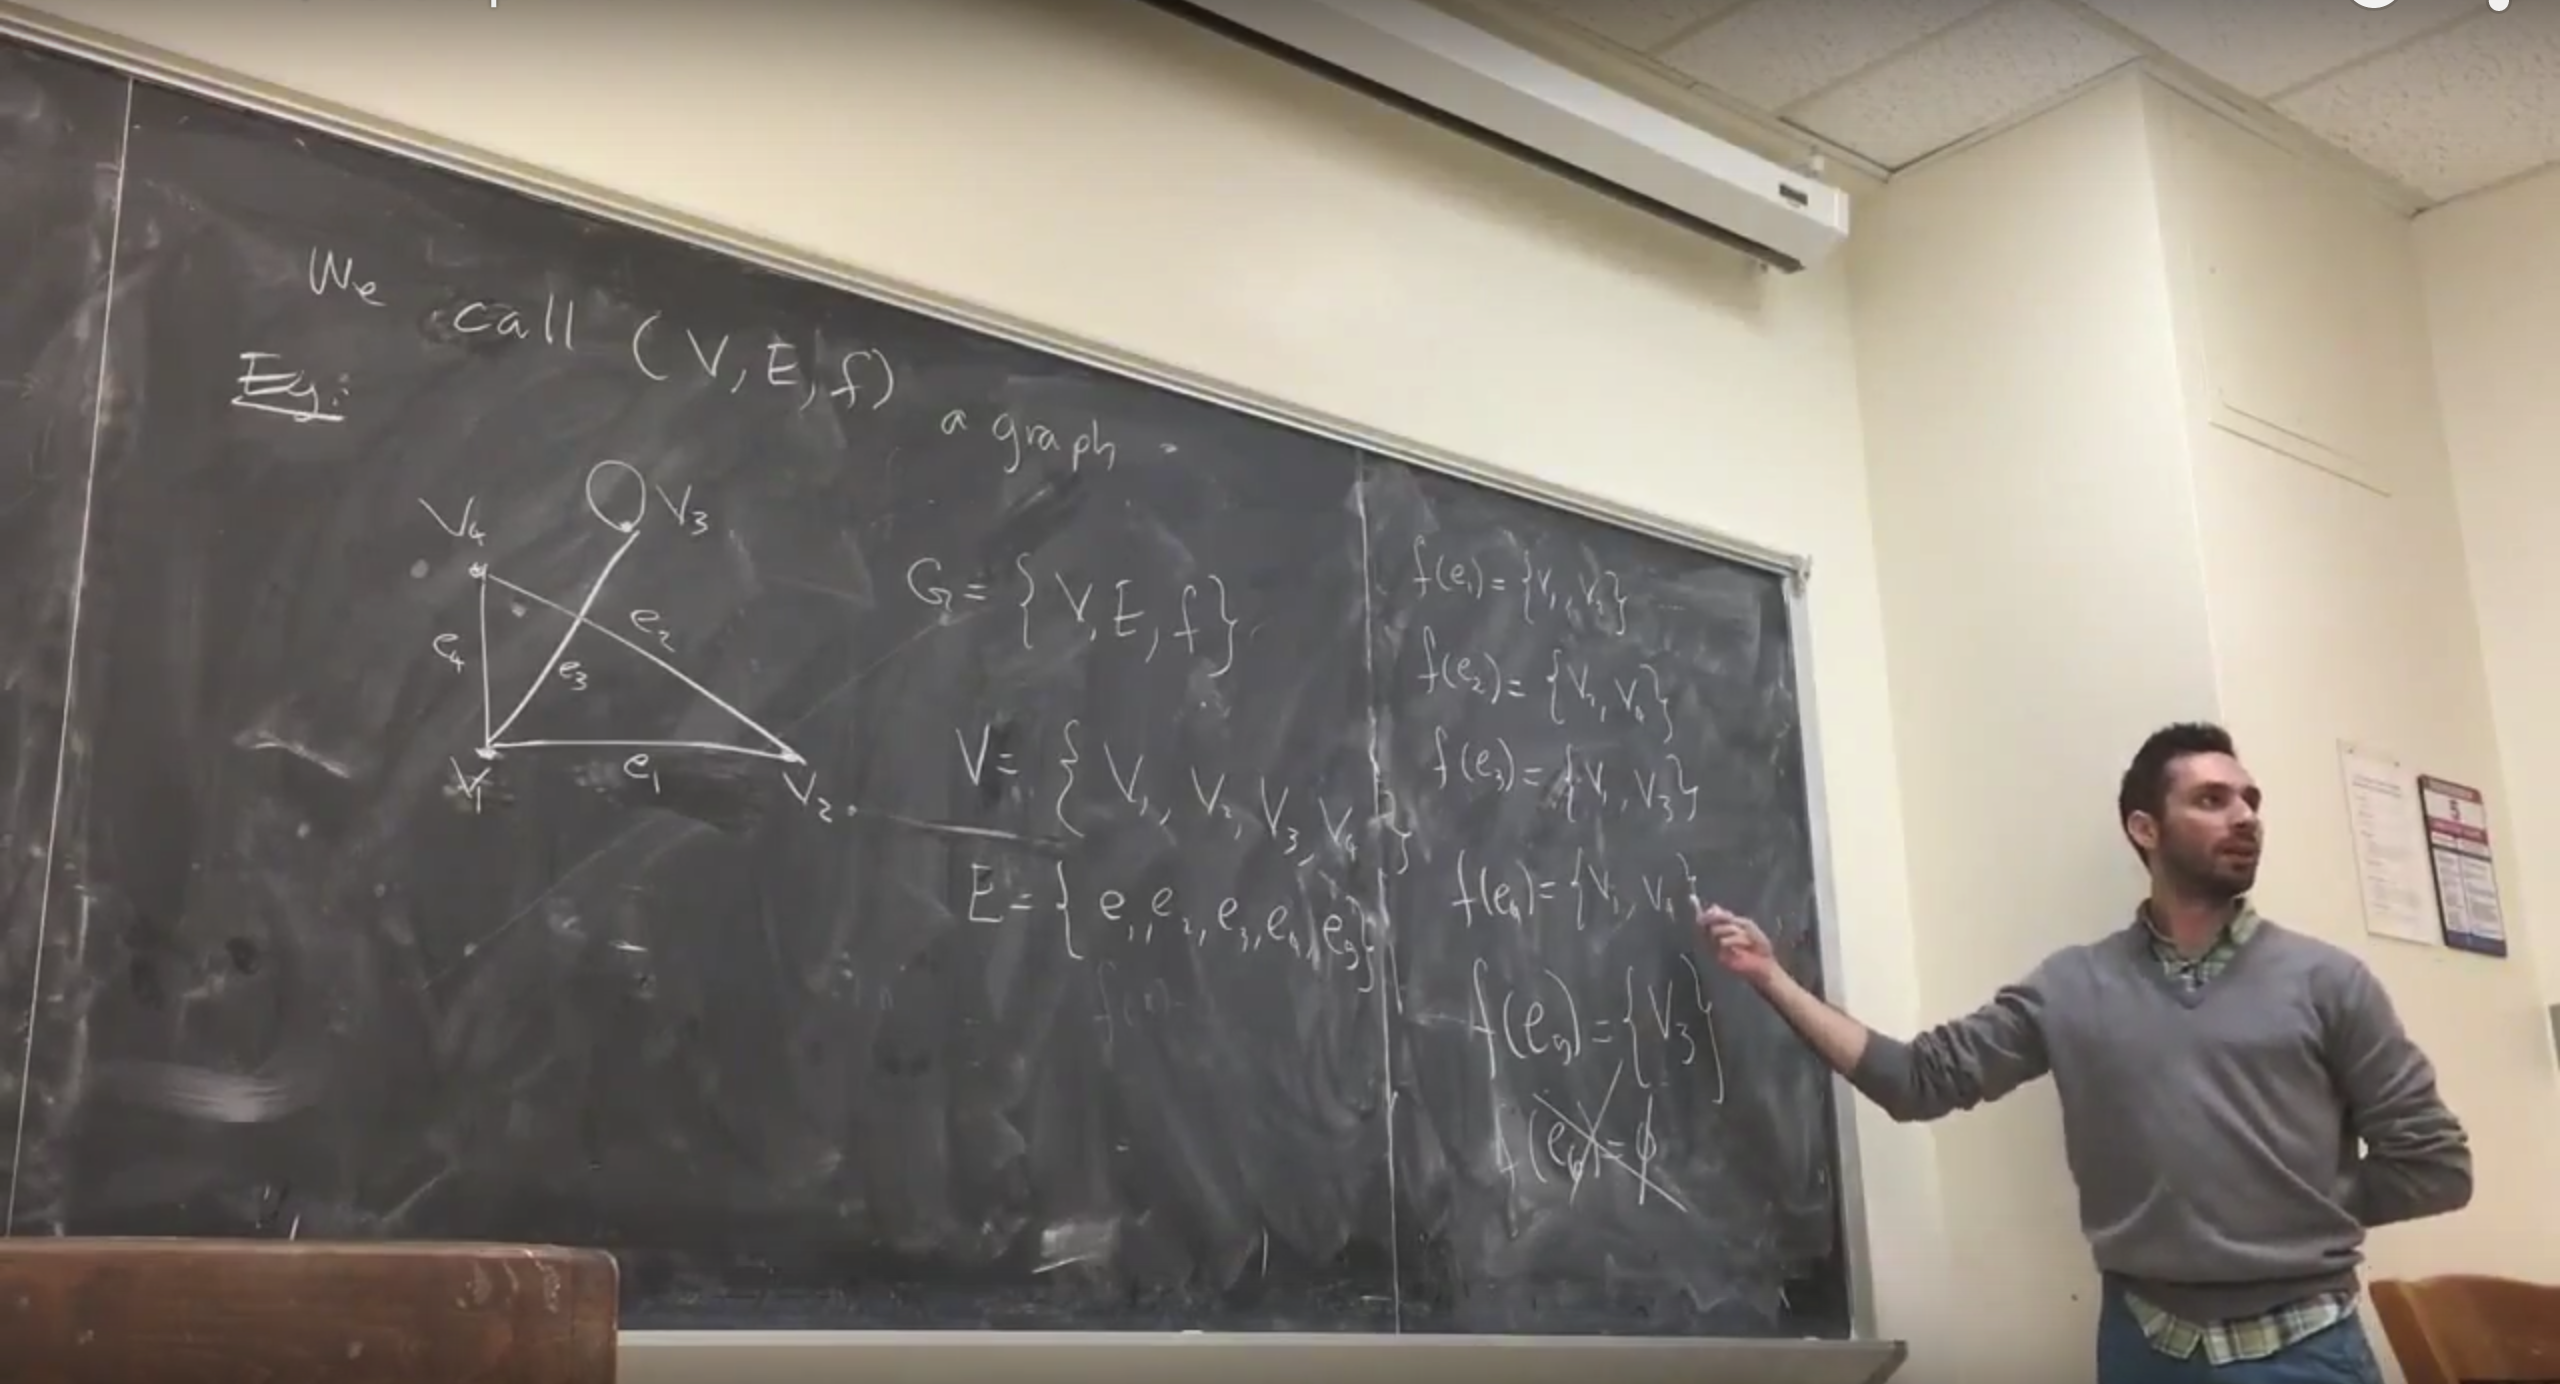 We call (V, E, f) a graph.
Eg:
V₄
V₃
e₂
e₄
e₃
V₁
e₁
V₂
G = {V, E, f}.
V = {V₁, V₂, V₃, V₄}
E = {e₁, e₂, e₃, e₄, e₅}
f(e₁) = {V₁, V₂}
f(e₂) = {V₂, V₄}
f(e₃) = {V₁, V₃}
f(e₄) = {V₁, V₄}
f(e₅) = {V₃}
f(e₆) = ϕ
5